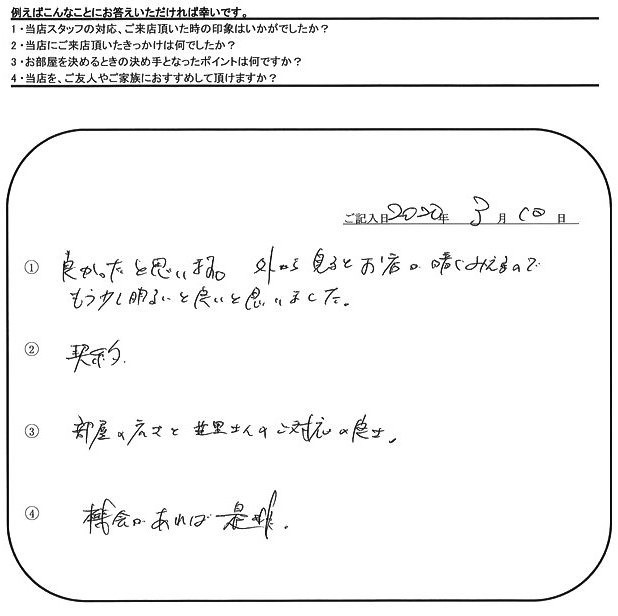 例えばこんなことにお答えいただければ幸いです。
1・当店スタッフの対応、ご来店頂いた時の印象はいかがでしたか?
2・当店にご来店頂いたきっかけは何でしたか?
3・お部屋を決めるときの決め手となったポイントは何ですか?
4・当店を、ご友人やご家族におすすめして頂けますか?
ご記入日2020年 3月 10日
① 良かったと思います。 外から見るとお店が暗くみえるので
もう少し明るいと良いと思いました。
② 契約
③ 部屋の広さと さんのご対応の良さ。
④ 機会があれば是非。